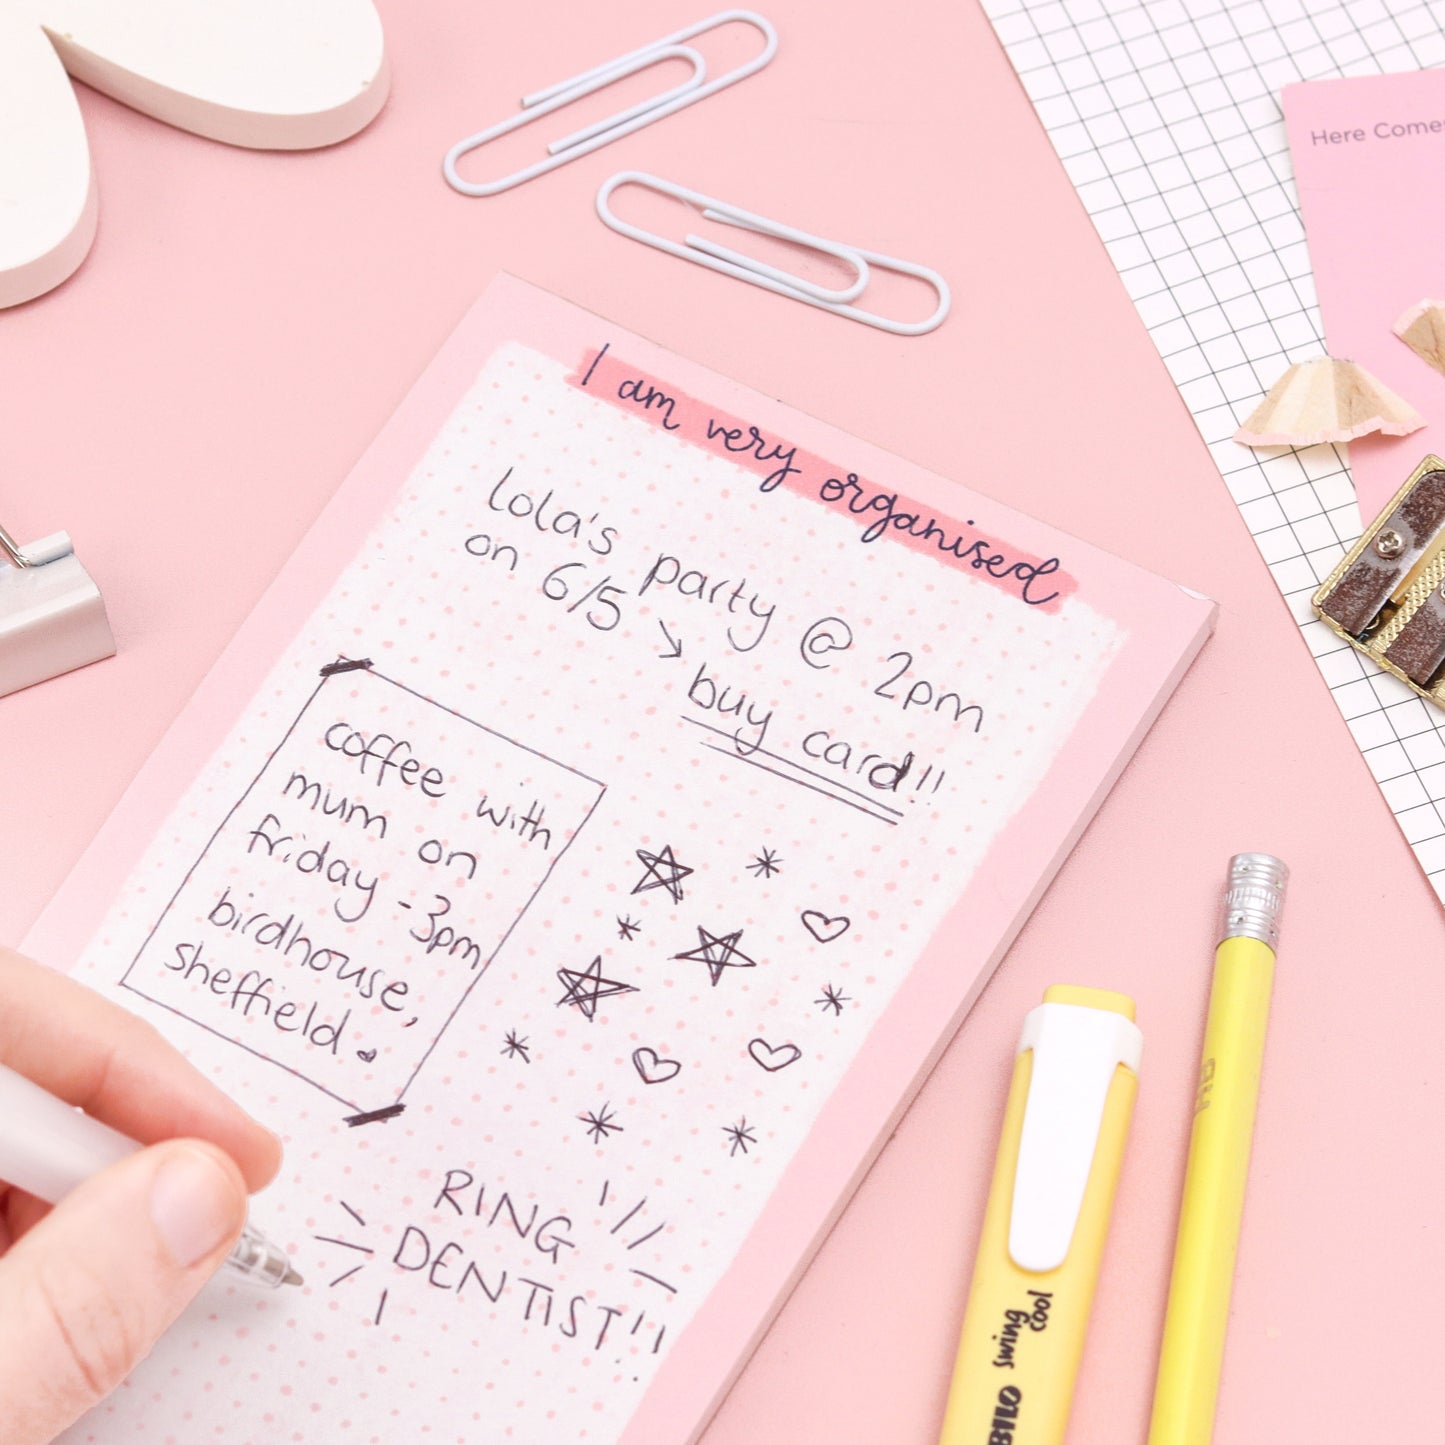 I am very organised
Lola's party @ 2pm
on 6/5 → buy card!!
coffee with
mum on
friday - 3pm
birdhouse,
sheffield.
RING
DENTIST!!
Here Comes
swing
cool